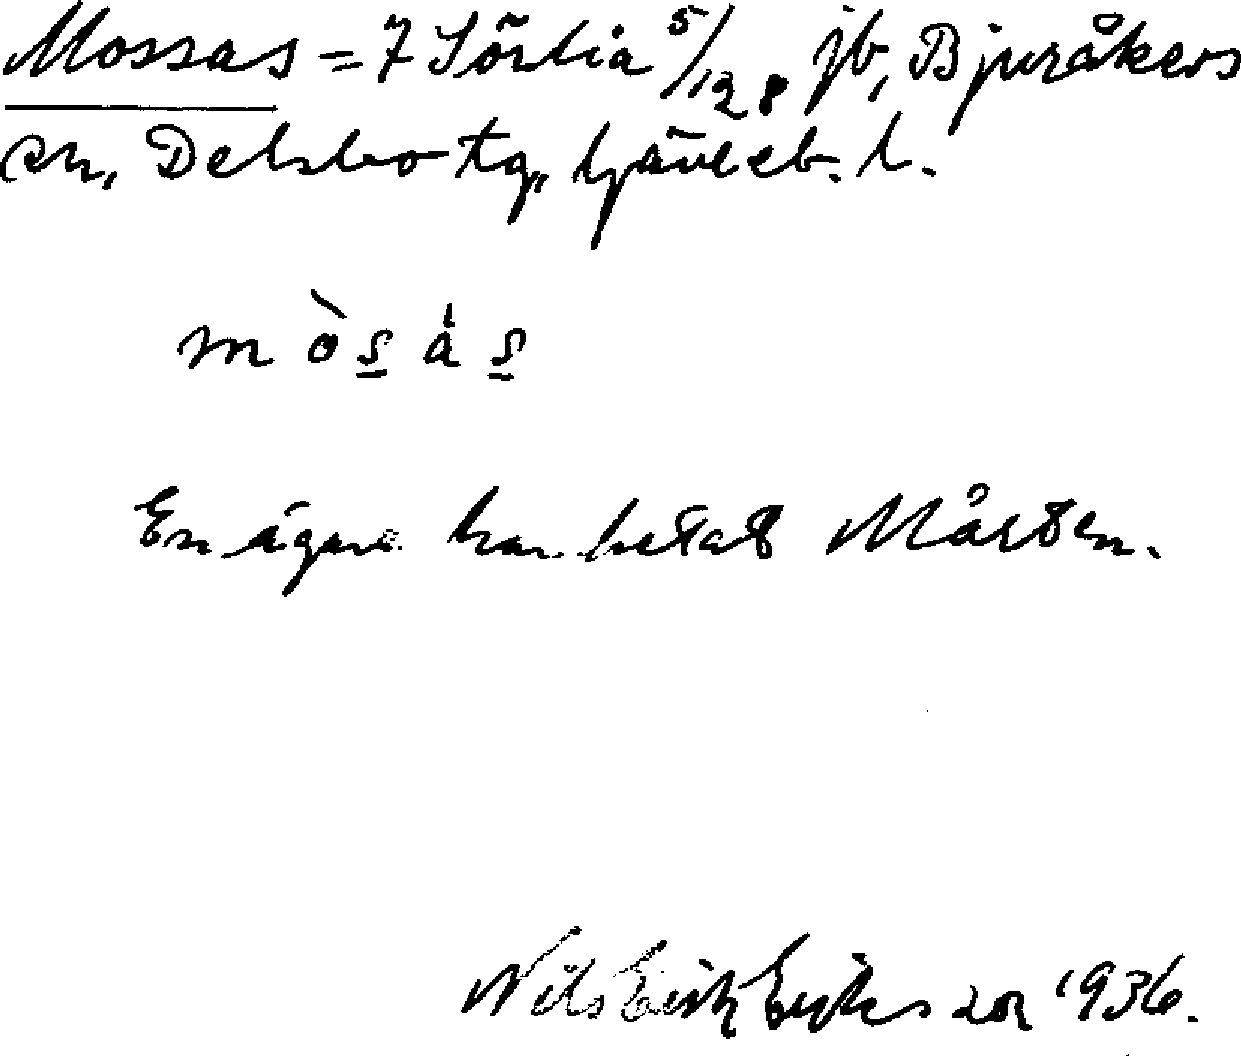 Mossas = 7 Sörlia 5/128 jb, Bjuråkers
sn, Delsbo tg, Gävleb. l.
mòs̲ȧs̲
En ägare har hetat Mårten.
Nils Erik Eriksson 1936.